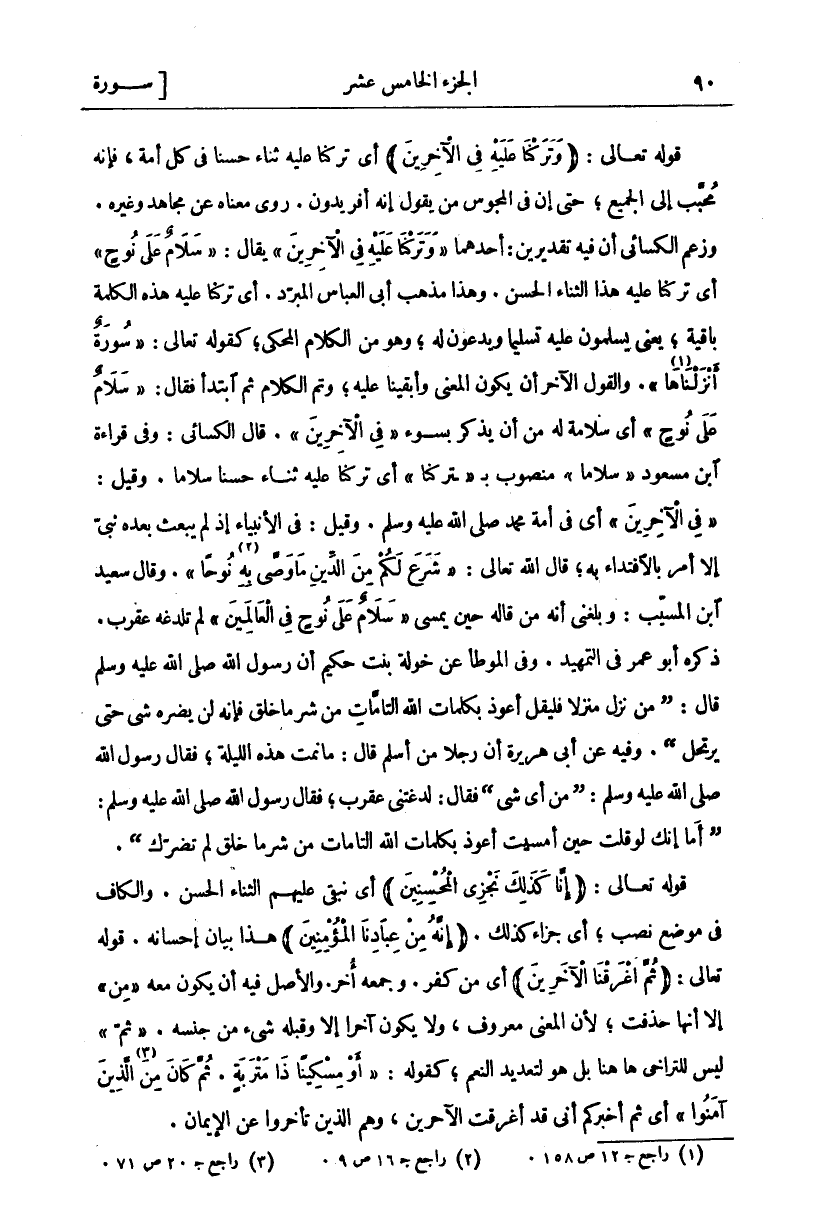 ٩٠ الجزء الخامس عشر [ ســورة
قوله تعـالى : ﴿ وَتَرَكْنَا عَلَيْهِ فِى الْآخِرِينَ ﴾ أى تركنا عليه ثناء حسنا فى كل أمة ، فإنه
مُحَبَّب إلى الجميع ؛ حتى إن فى المجوس من يقول إنه أفريدون . روى معناه عن مجاهد وغيره .
وزعم الكسائى أن فيه تقديرين : أحدهما « وَتَرَكْنَا عَلَيْهِ فِى الْآخِرِينَ » يقال : « سَلَامٌ عَلَى نُوحٍ »
أى تركنا عليه هذا الثناء الحسن . وهذا مذهب أبى العباس المبرّد . أى تركنا عليه هذه الكلمة
باقية ؛ يعنى يسلمون عليه تسليما ويدعون له ؛ وهو من الكلام المحكى ؛ كقوله تعالى : « سُورَةٌ
أَنْزَلْنَاهَا (١) » . والقول الآخر أن يكون المعنى وأبقينا عليه ؛ وتم الكلام ثم ٱبتدأ فقال : « سَلَامٌ
عَلَى نُوحٍ » أى سلامة له من أن يذكر بسوء « فِى الْآخِرِينَ » . قال الكسائى : وفى قراءة
ٱبن مسعود « سلاما » منصوب بـ « ـتركنا » أى تركنا عليه ثنــاء حسنا سلاما . وقيل :
« فِى الْآخِرِينَ » أى فى أمة محمد صلى الله عليه وسلم . وقيل : فى الأنبياء إذ لم يبعث بعده نبىّ
إلا أمر بالٱقتداء به ؛ قال الله تعالى : « شَرَعَ لَكُمْ مِنَ الدِّينِ مَا وَصَّى بِهِ نُوحًا (٢) » . وقال سعيد
ٱبن المسيّب : وبلغنى أنه من قاله حين يمسى « سَلَامٌ عَلَى نُوحٍ فِى الْعَالَمِينَ » لم تلدغه عقرب .
ذكره أبو عمر فى التمهيد . وفى الموطأ عن خولة بنت حكيم أن رسول الله صلى الله عليه وسلم
قال : ” من نزل منزلا فليقل أعوذ بكلمات الله التامّات من شر ما خلق فإنه لن يضره شى حتى
يرتحل “ . وفيه عن أبى هريرة أن رجلا من أسلم قال : ما نمت هذه الليلة ؛ فقال رسول الله
صلى الله عليه وسلم : ” من أى شى “ فقال : لدغتنى عقرب ؛ فقال رسول الله صلى الله عليه وسلم :
” أَمَا إنك لو قلت حين أمسيت أعوذ بكلمات الله التامات من شر ما خلق لم تضرّك “ .
قوله تعـالى : ﴿ إِنَّا كَذَلِكَ نَجْزِى الْمُحْسِنِينَ ﴾ أى نبقى عليهـم الثناء الحسن . والكاف
فى موضع نصب ؛ أى جزاء كذلك . ﴿ إِنَّهُ مِنْ عِبَادِنَا الْمُؤْمِنِينَ ﴾ هـذا بيان إحسانه . قوله
تعالى : ﴿ ثُمَّ أَغْرَقْنَا الْآخَرِينَ ﴾ أى من كفر . وجمعه أُخر . والأصل فيه أن يكون معه « مِن »
إلا أنها حذفت ؛ لأن المعنى معروف ، ولا يكون آخرا إلا وقبله شىء من جنسه . « ثمّ »
ليس للتراخى ها هنا بل هو لتعديد النعم ؛ كقوله : « أَوْ مِسْكِينًا ذَا مَتْرَبَةٍ . ثُمَّ كَانَ (٣) مِنَ الَّذِينَ
آمَنُوا » أى ثم أخبركم أنى قد أغرقت الآخرين ، وهم الذين تأخروا عن الإيمان .
(١) راجع جـ ١٢ ص ١٥٨ . (٢) راجع جـ ١٦ ص ٩ . (٣) راجع جـ ٢٠ ص ٧١ .